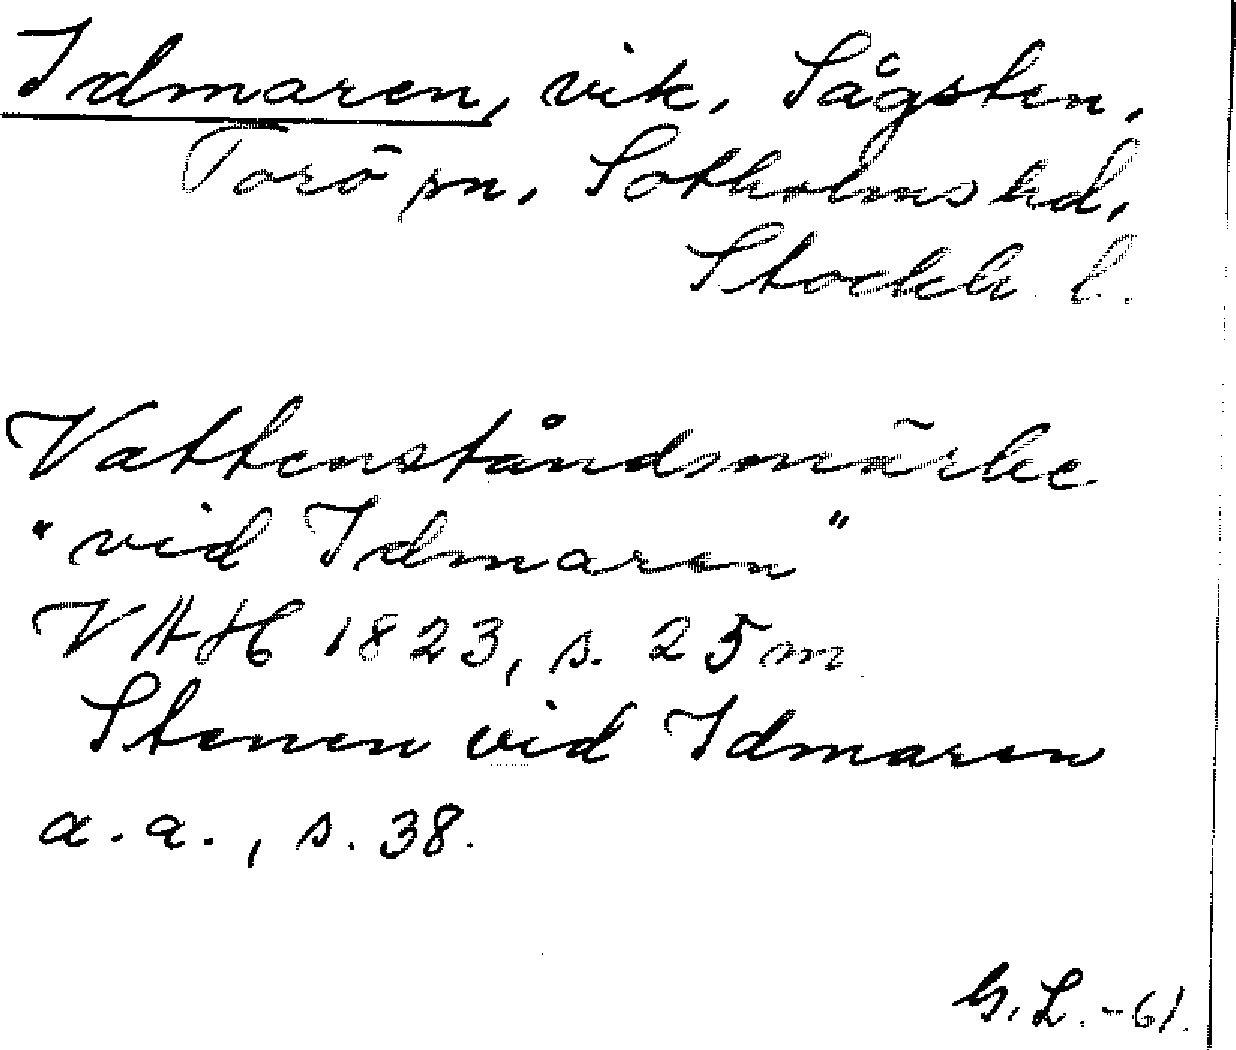 Idmaren, vik, Sågsten,
Torö sn, Sotholms hd,
Stockh. l.
Vattenståndsmärke
"vid Idmaren"
VAH 1823, s. 25 m
Stenen vid Idmaren
a.a., s. 38.
G.L. -61.